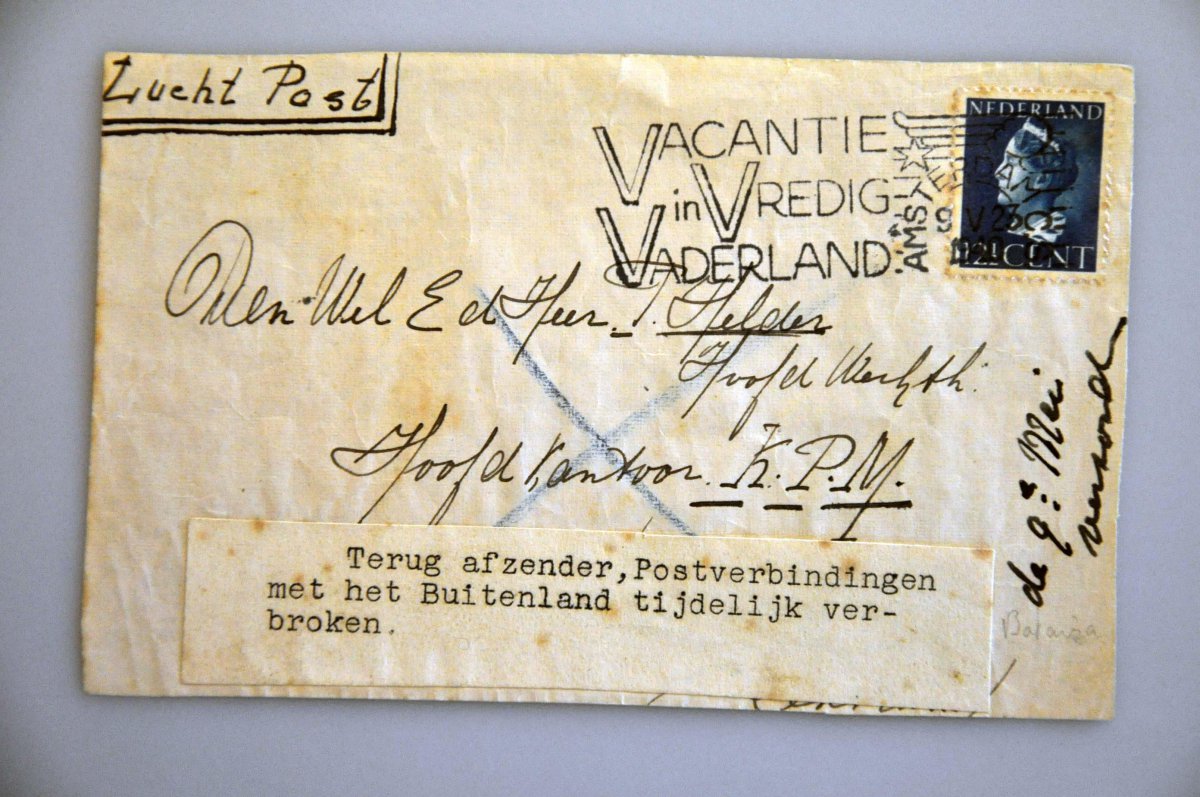 Lucht Post
VACANTIE
in VREDIG
VADERLAND
AMSTERDAM
9 V 23
1940
NEDERLAND
CENT
Den Wel Ed Heer T. Helder
Hoofd Werkth.
Hoofd Kantoor K.P.M.
de 9e Mei
Terug afzender, Postverbindingen
met het Buitenland tijdelijk ver-
broken.